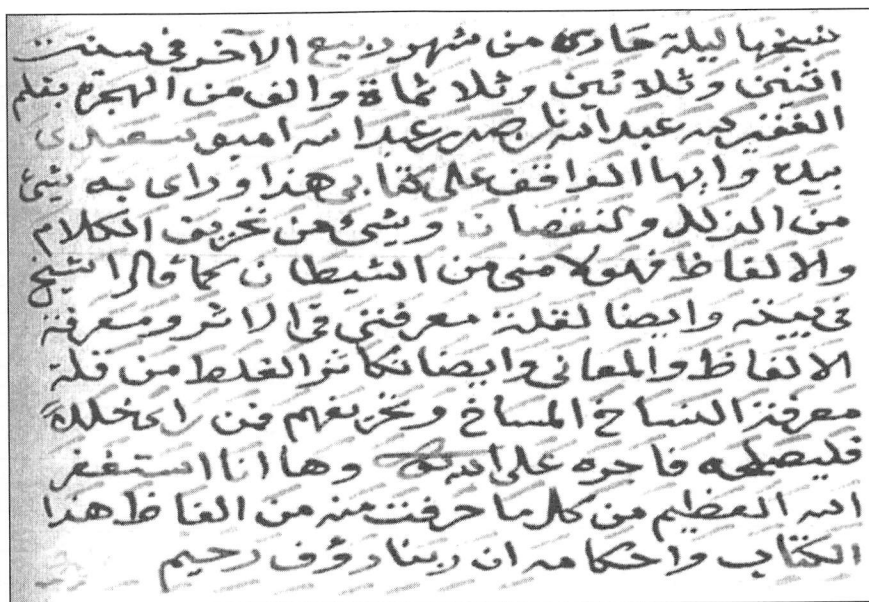 نسخها ليلة حادى من شهر ربيع الآخر فى سنت
اثنين وثلاثين وثلاثماة والف من الهجرة بقلم
الفقير لله عبدالله بن عبدالله امبو سعيدى
بيده وايها الواقف على كتابى هذا وراى به شئ
من الزلل ولنقصان وشئ من تحريف الكلام
والالفاظ فهو لا منى من الشيطان كما قال الشيخ
فى وايضا لقلة معرفتى فى الاثر ومعرفة
الالفاظ والمعانى وايضا تكاثر الغلط من قلة
معرفة النساخ المساخ وتحريفهم فمن راى خللاً
فليصلحه فاجره على الله وها انا استغفر
الله العظيم من كل ما حرفت منه من الفاظ هذا
الكتاب واحكامه ان ربنا رؤف رحيم